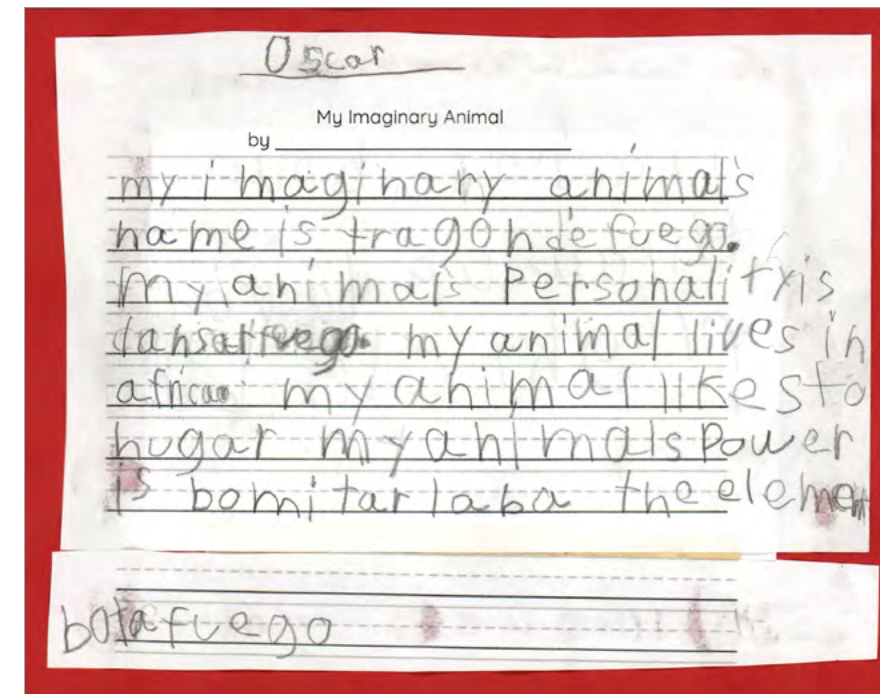 Oscar
My Imaginary Animal
by
my imaginary animal's
name is tragon de fuego.
my animals Personality is
my animal lives in
africa my animal likes to
hugar my animals Power
is bomitar laba the elemen
botafuego